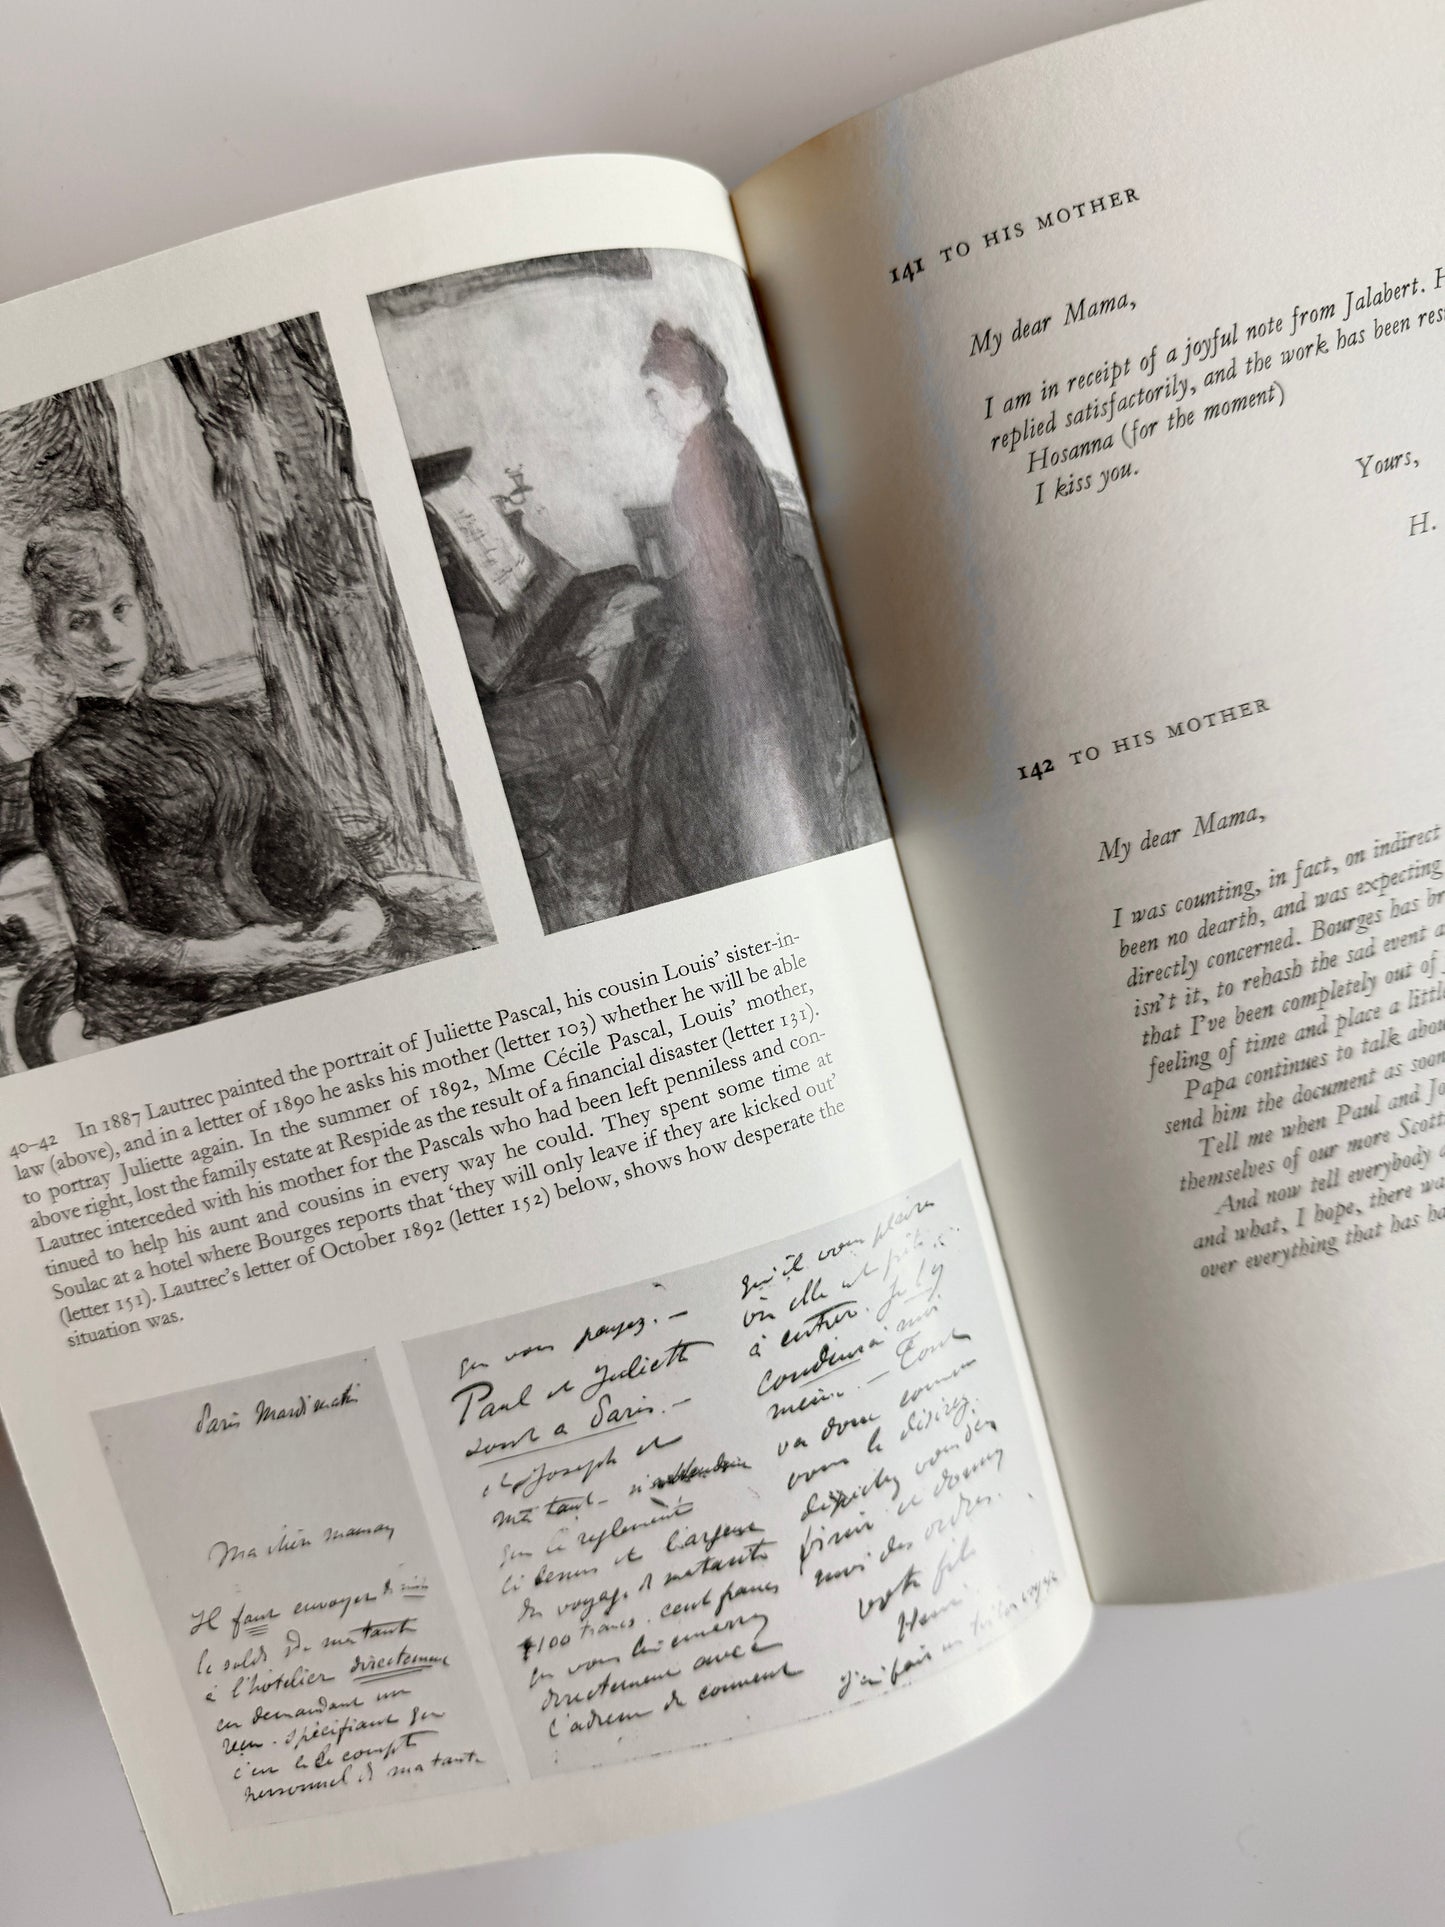 40–42 In 1887 Lautrec painted the portrait of Juliette Pascal, his cousin Louis' sister-in-
law (above), and in a letter of 1890 he asks his mother (letter 103) whether he will be able
to portray Juliette again. In the summer of 1892, Mme Cécile Pascal, Louis' mother,
above right, lost the family estate at Respide as the result of a financial disaster (letter 131).
Lautrec interceded with his mother for the Pascals who had been left penniless and con-
tinued to help his aunt and cousins in every way he could. They spent some time at
Soulac at a hotel where Bourges reports that 'they will only leave if they are kicked out'
(letter 151). Lautrec's letter of October 1892 (letter 152) below, shows how desperate the
situation was.
Paris Mardi matin
Ma chère maman
Il faut envoyer
le solde de ma tante
à l'hôtelier directement
en demandant un
reçu. spécifiant que
c'en le compte
personnel de ma tante
que vous payez. —
Paul et Juliette
sont a Paris. —
et Joseph et
ma tante
que le reglement
et l'argent
du voyage de ma tante
100 francs. cent francs
que vous lui enverrez
directement avec
l'adresse de couvent
qu'il vous plaira
où elle est prête
à entrer. Je l'y
conduirai moi
même. — Tout
va donc comme
vous le désirez.
dépêchez vous d'en
finir et donnez
moi des ordres.
votre fils
Henri
141 TO HIS MOTHER
My dear Mama,
I am in receipt of a joyful note from Jalabert. H
replied satisfactorily, and the work has been res
Hosanna (for the moment)
I kiss you.
Yours,
H.
142 TO HIS MOTHER
My dear Mama,
I was counting, in fact, on indirect
been no dearth, and was expecting
directly concerned. Bourges has br
isn't it, to rehash the sad event a
that I've been completely out of
feeling of time and place a little
Papa continues to talk abou
send him the document as soon
Tell me when Paul and Jo
themselves of our more Scott
And now tell everybody
and what, I hope, there wa
over everything that has ha